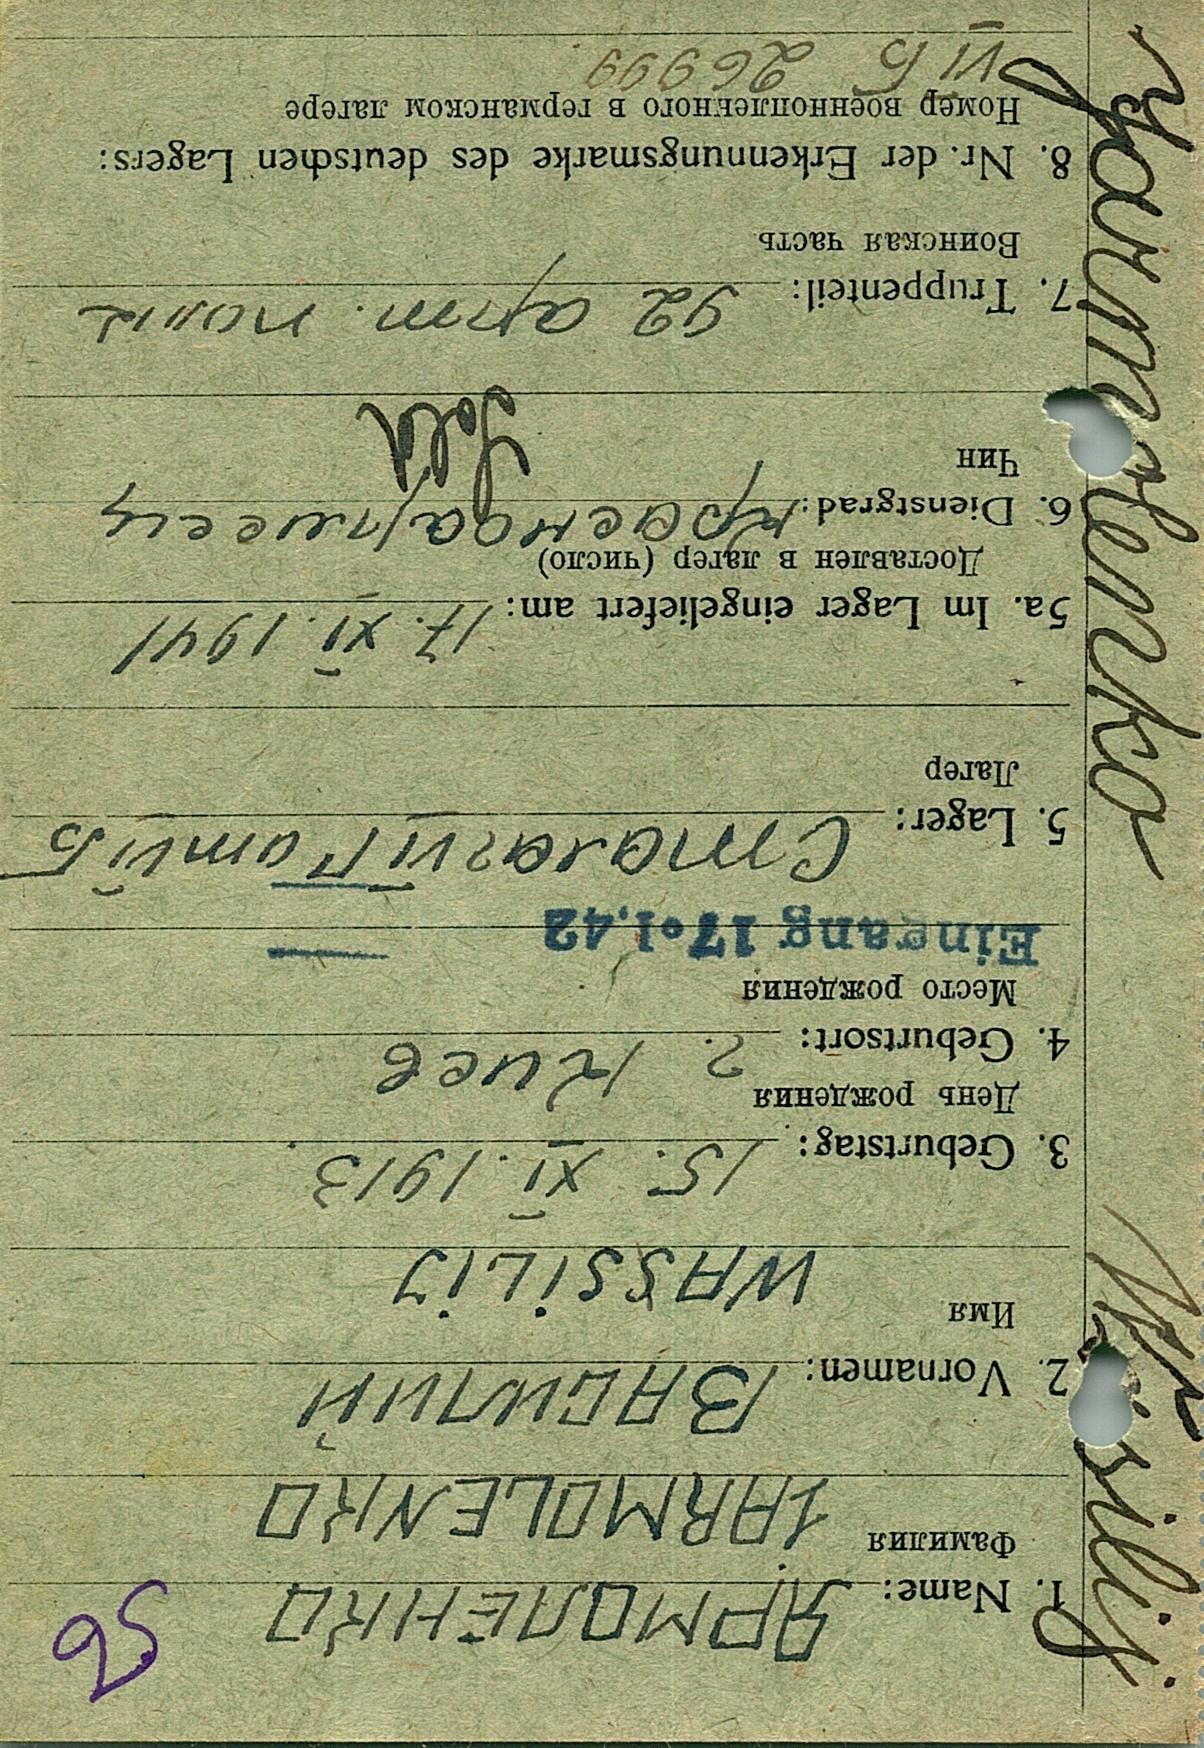 56
1. Name: ЯРМОЛЕНКО
Фамилия
IARMOLENKO
2. Vornamen: ВАСИЛИЙ
Имя
WASSILIJ
3. Geburtstag: 15. XI. 1913
День рождения
4. Geburtsort: г. Киев
Место рождения
Eingang 17.1.42
5. Lager: Сталаг VI Г от VI Б
Лагер
5a. Im Lager eingeliefert am: 17. XI. 1941
Доставлен в лагер (число)
6. Dienstgrad: красноармеец
Чин
Sold
7. Truppenteil: 92 арт. полк
Воинская часть
8. Nr. der Erkennungsmarke des deutschen Lagers:
Номер военнопленного в германском лагере
VI Б 26999
Yarmolenko Wassilij